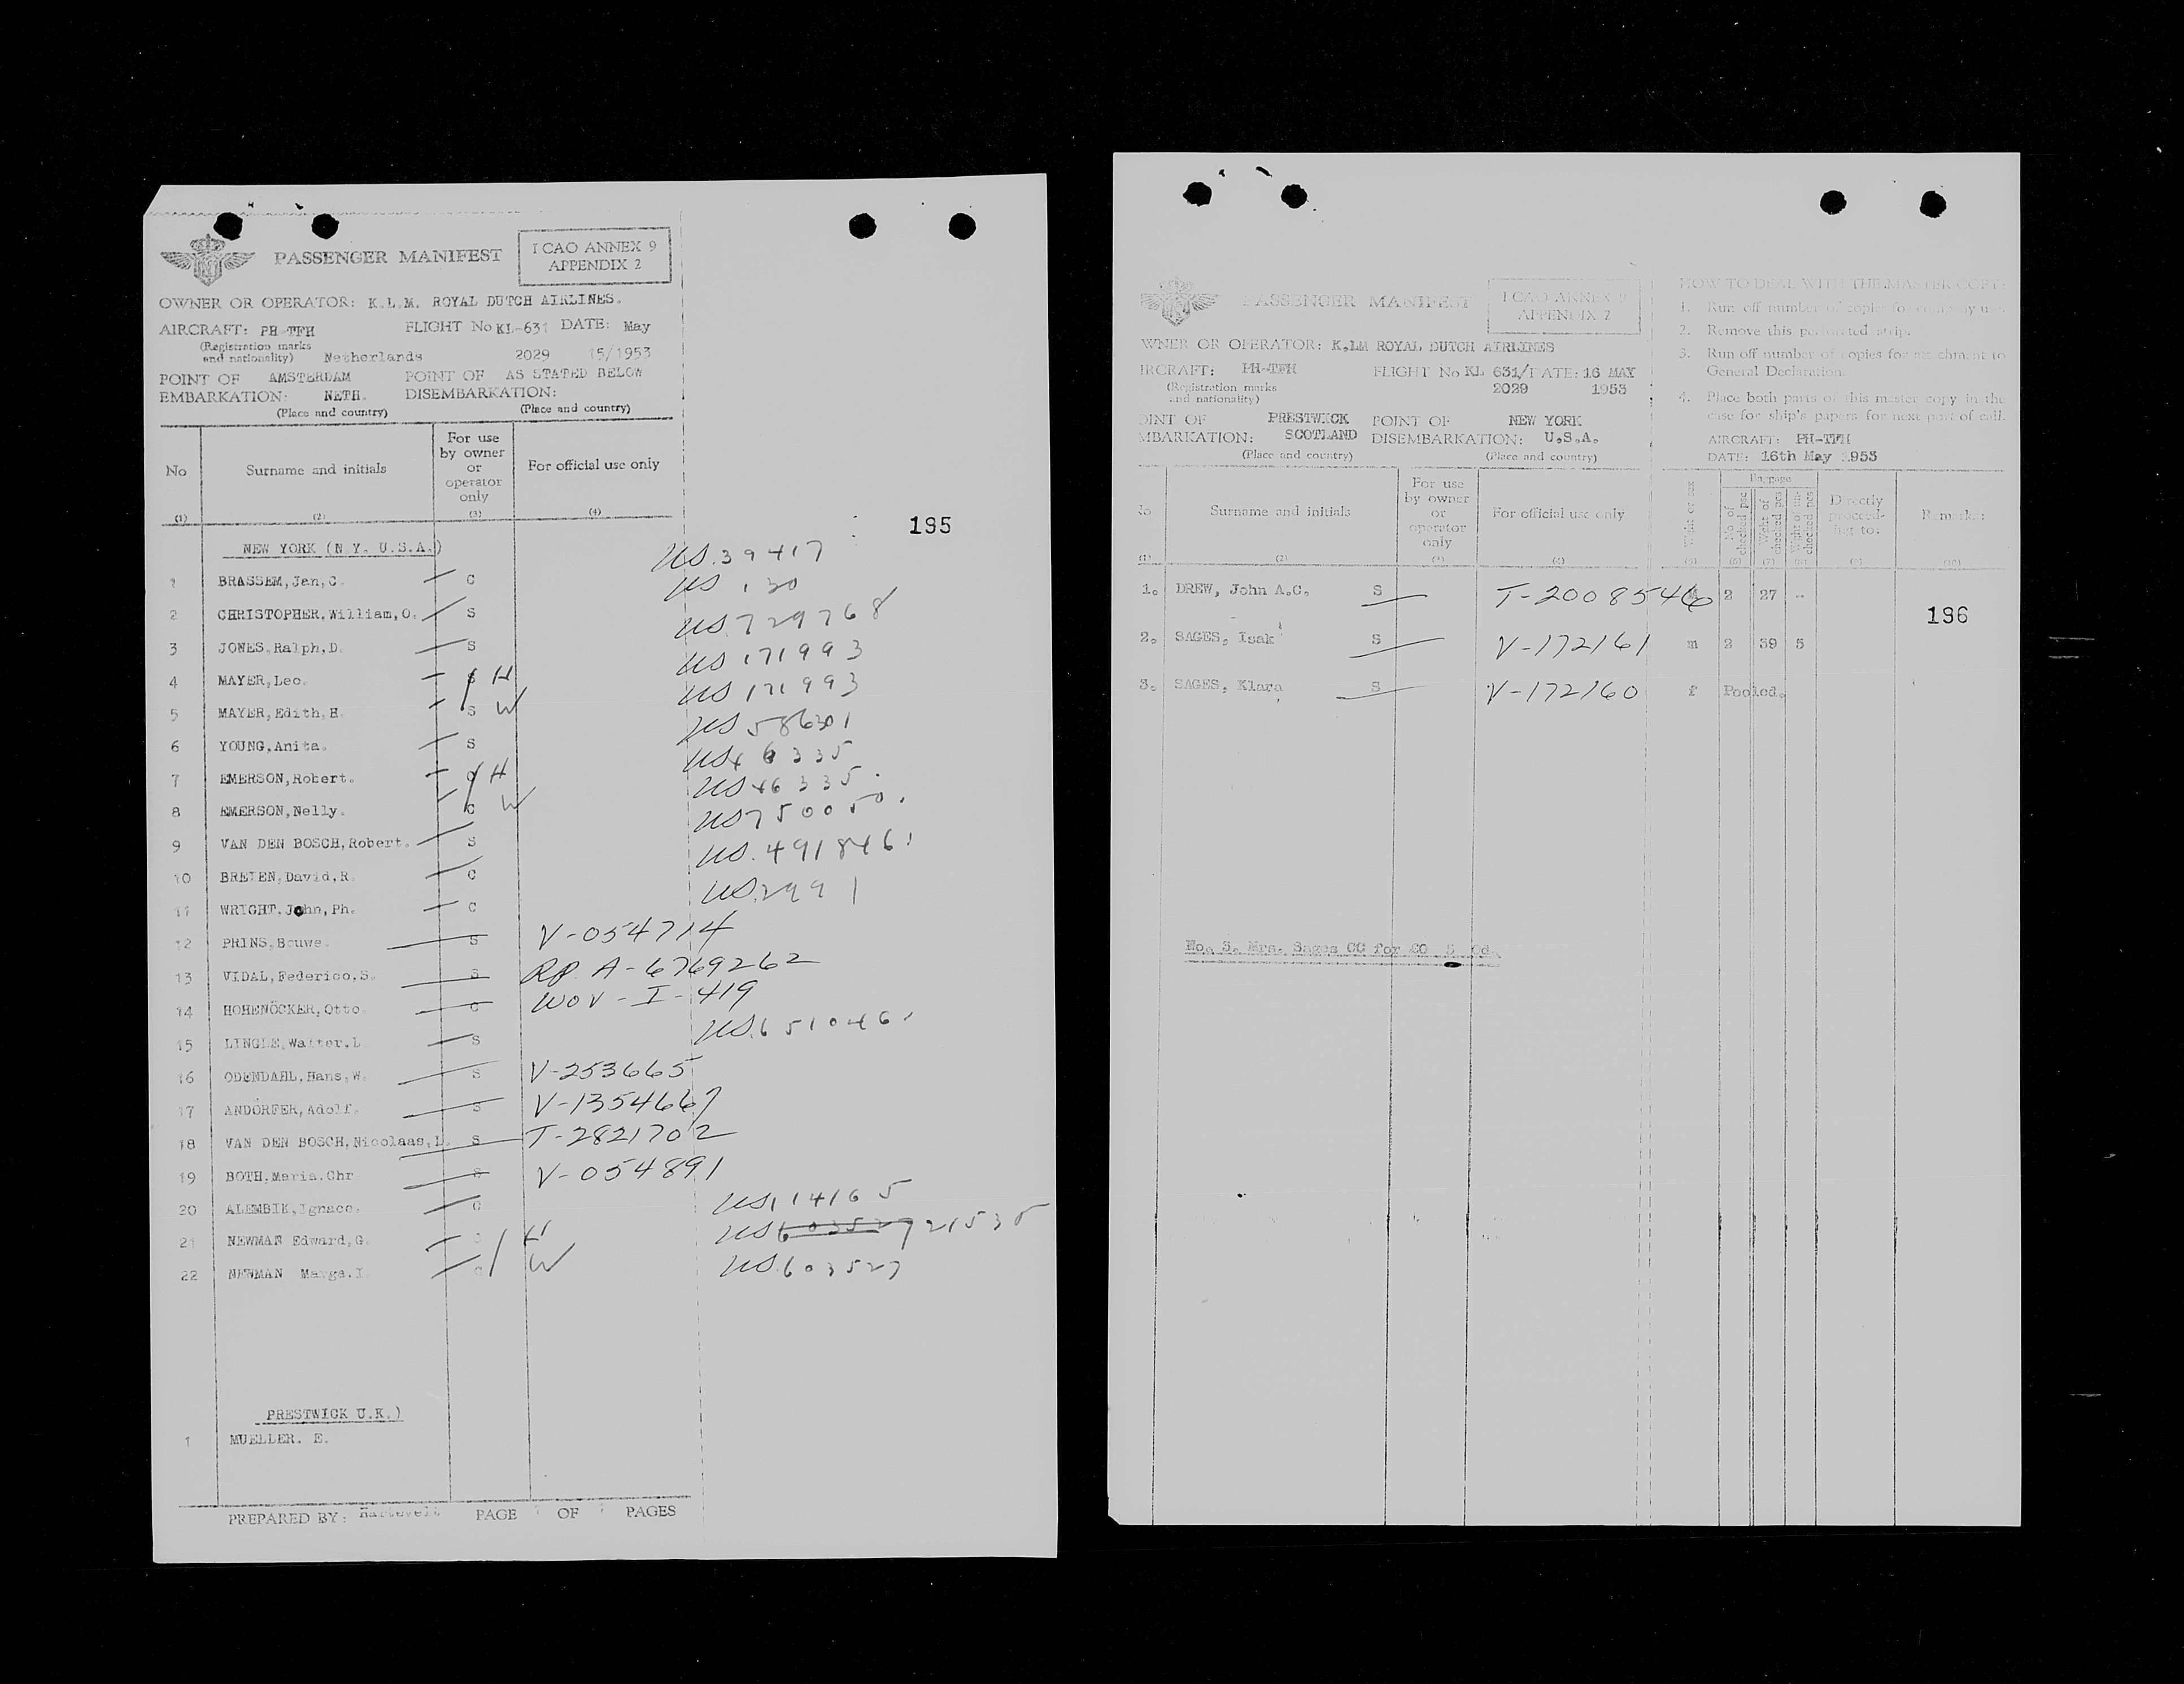 PASSENGER MANIFEST
I CAO ANNEX 9
APPENDIX 2
OWNER OR OPERATOR: K.L.M. ROYAL DUTCH AIRLINES.
AIRCRAFT: PH-TFH FLIGHT No KL-631 DATE: May
(Registration marks
and nationality) Netherlands 2029 15/1953
POINT OF AMSTERDAM POINT OF AS STATED BELOW
EMBARKATION: NETH. DISEMBARKATION:
(Place and country) (Place and country)
No Surname and initials For use by owner or operator only For official use only
(1) (2) (3) (4)
195
NEW YORK (N.Y. U.S.A.)
US.39417
1 BRASSEM, Jan, C. C US 130
2 CHRISTOPHER, William, O. S US.729768
3 JONES, Ralph, D. S US 171993
4 MAYER, Leo. S H US 171993
5 MAYER, Edith, H. S W US 586301
6 YOUNG, Anita. S US 46335
7 EMERSON, Robert. C H US 46335.
8 EMERSON, Nelly. C W US 750050.
9 VAN DEN BOSCH, Robert. S US. 491846
10 BREIEN, David, R. C US.2991
11 WRIGHT, John, Ph. C
12 PRINS, Bouwe. S V-054714
13 VIDAL, Federico, S. S RP. A-6769262
14 HOHENÖCKER, Otto. C WOV-I-419
15 LINGLE, Walter, L S US.651046
16 ODENDAHL, Hans, W. S V-253665
17 ANDÖRFER, Adolf. S V-1354667
18 VAN DEN BOSCH, Nicolaas, L. S T-2821702
19 BOTH, Maria, Chr S V-054891
20 ALEMBIK, Ignace. C US 114165
21 NEWMAN Edward, G. H US 603527 21535
22 NEWMAN Marga. I. C W US.603527
PRESTWICK U.K.)
1 MUELLER. E.
PREPARED BY: Hartevelt PAGE OF PAGES
PASSENGER MANIFEST
I CAO ANNEX 9
APPENDIX 2
WNER OR OPERATOR: K.LM ROYAL DUTCH AIRLINES
IRCRAFT: PH-TFH FLIGHT No KL 631/ DATE: 16 MAY
(Registration marks
and nationality) 2029 1953
OINT OF PRESTWICK POINT OF NEW YORK
MBARKATION: SCOTLAND DISEMBARKATION: U.S.A.
(Place and country) (Place and country)
HOW TO DEAL WITH THE MASTER COPY:
1. Run off number of copies for company use.
2. Remove this perforated strip.
3. Run off number of copies for attachment to
General Declaration.
4. Place both parts of this master copy in the
case for ship's papers for next port of call.
AIRCRAFT: PH-TFH
DATE: 16th May 1953
No Surname and initials For use by owner or operator only For official use only Weight or sex Baggage No. of checked pcs Weight of checked pcs Weight of unchecked pcs Directly proceeding to: Remarks:
(1) (2) (3) (4) (5) (6) (7) (8) (9) (10)
1. DREW, John A.C. S T-2008546 2 27 --
196
2. SAGES, Isak S V-172161 m 2 39 5
3. SAGES, Klara S V-172160 f Pooled.
No. 3. Mrs. Sages CC for CO